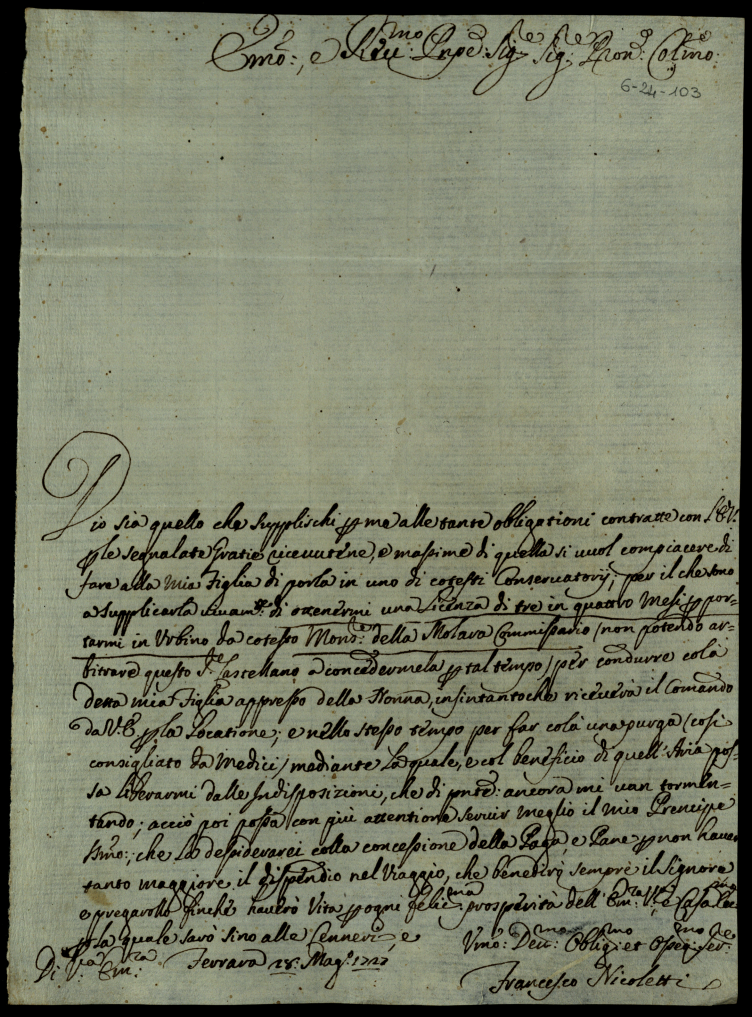 Emo:, e Rev:mo Pnpe: Sig:re Sig:re Pron: Colmo:
6-24-103
Dio sia quello che supplischi p me alle tante obligationi contratte con l'E.V.
p le segnalate Gratie ricevutene, e massime di quella si vuol compiacere di
fare alla mia Figlia di porla in uno di cotesti Conservatorij; per il che sono
a supplicarla vivam:te di ottenermi una Licenza di tre in quattro Mesi p por=
tarmi in Urbino da cotesto Mons:re della Molara Commissario (non potendo ar=
bitrare questo Castellano a concedermela p tal tempo) per condurre colà
detta mia Figlia appresso della Nonna, insintantoche riceverà il Comando
da V:E p la Locatione; e nello stesso tempo per far colà una purga (così
consigliato da Medici) mediante La quale, e col beneficio di quell'Aria pos=
sa liberarmi dalle Indisposizioni, che di pnte: ancora mi van tormen=
tando; acciò poi possa con più attentione servir meglio il mio Prencipe
che La desiderarei colla concessione della Paga, e Pane p non haver
tanto maggiore il dispendio nel Viaggio, che benedirò sempre il Signore
e pregarollo finche haverò Vita p ogni felic:ma prosperità dell' Em:za V:ra, e Casa
p la quale sarò sino alle Ceneri e
Di V:ra Em:za Ferrara 28: Mag:o 1727
Vmo: Dev:mo Oblig:mo et Osseq:mo Ser:re
Francesco Nicoletti